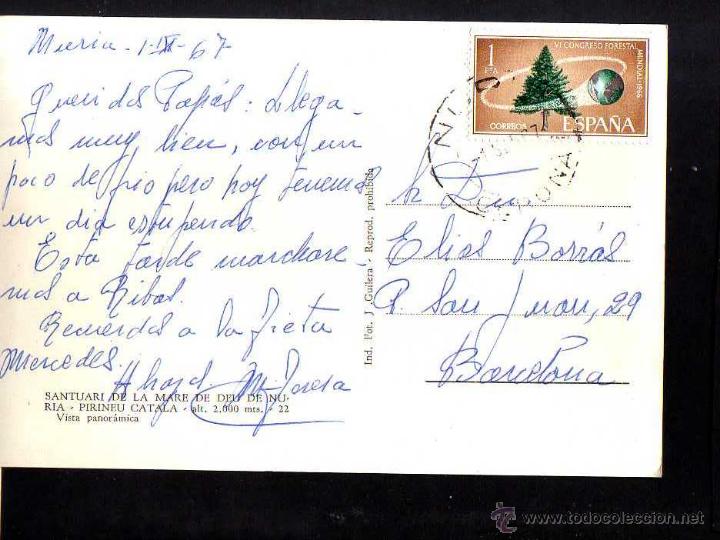 Nuria - 1-IX-67
Queridos Papás: Llega-
mos muy bien, con un
poco de frio pero hoy tenemos
un dia estupendo.
Esta tarde marchare-
mos a Ribas.
Recuerdos a la Tieta
Mercedes.
M. Teresa
SANTUARI DE LA MARE DE DEU DE NU-
RIA - PIRINEU CATALA - alt. 2.000 mts. - 22
Vista panorámica
Ind. Fot. J. Guilera - Reprod. prohibida
1
PTA
VI CONGRESO FORESTAL
MUNDIAL-1966
CORREOS ESPAÑA
GERONA
Sr. Don
Elias Borrás
P. San Juan, 29
Barcelona
www.todocoleccion.net